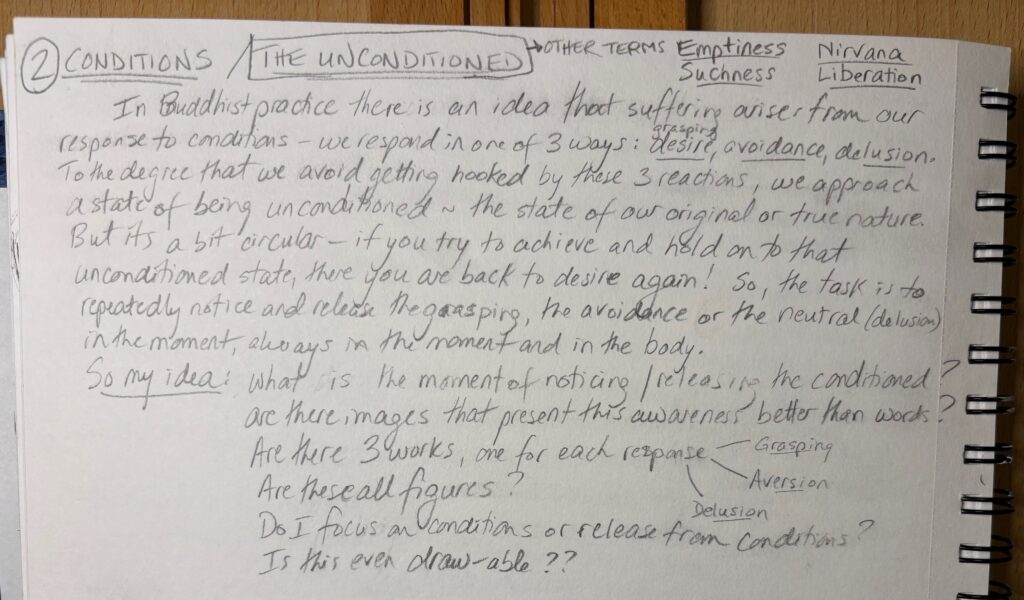 2 CONDITIONS / THE UNCONDITIONED → OTHER TERMS Emptiness Nirvana
Suchness Liberation
In Buddhist practice there is an idea that suffering arises from our
response to conditions – we respond in one of 3 ways: grasping desire, avoidance, delusion.
To the degree that we avoid getting hooked by these 3 reactions, we approach
a state of being unconditioned ~ the state of our original or true nature.
But its a bit circular – if you try to achieve and hold on to that
unconditioned state, there you are back to desire again! So, the task is to
repeatedly notice and release the grasping, the avoidance or the neutral (delusion)
in the moment, always in the moment and in the body.
So my idea: What is the moment of noticing / releasing the conditioned?
are there images that present this awareness better than words?
Are there 3 works, one for each response Grasping
Are these all figures? Aversion
Delusion
Do I focus on conditions or release from conditions?
Is this even draw-able??